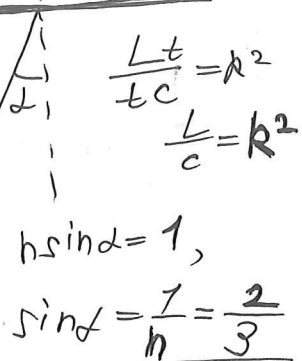 α
Lt/tc = k²
L/c = k²
n sin α = 1,
sin α = 1/n = 2/3